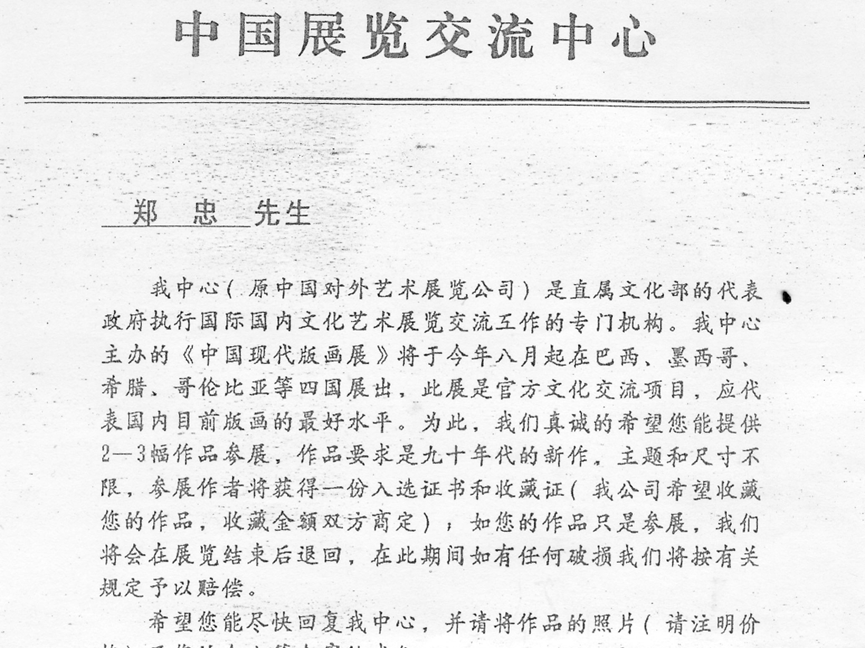 中国展览交流中心
郑 忠 先生
我中心（原中国对外艺术展览公司）是直属文化部的代表
政府执行国际国内文化艺术展览交流工作的专门机构。我中心
主办的《中国现代版画展》将于今年八月起在巴西、墨西哥、
希腊、哥伦比亚等四国展出，此展是官方文化交流项目，应代
表国内目前版画的最好水平。为此，我们真诚的希望您能提供
2—3幅作品参展，作品要求是九十年代的新作。主题和尺寸不
限，参展作者将获得一份入选证书和收藏证（我公司希望收藏
您的作品，收藏金额双方商定）；如您的作品只是参展，我们
将会在展览结束后退回，在此期间如有任何破损我们将按有关
规定予以赔偿。
希望您能尽快回复我中心，并请将作品的照片（请注明价